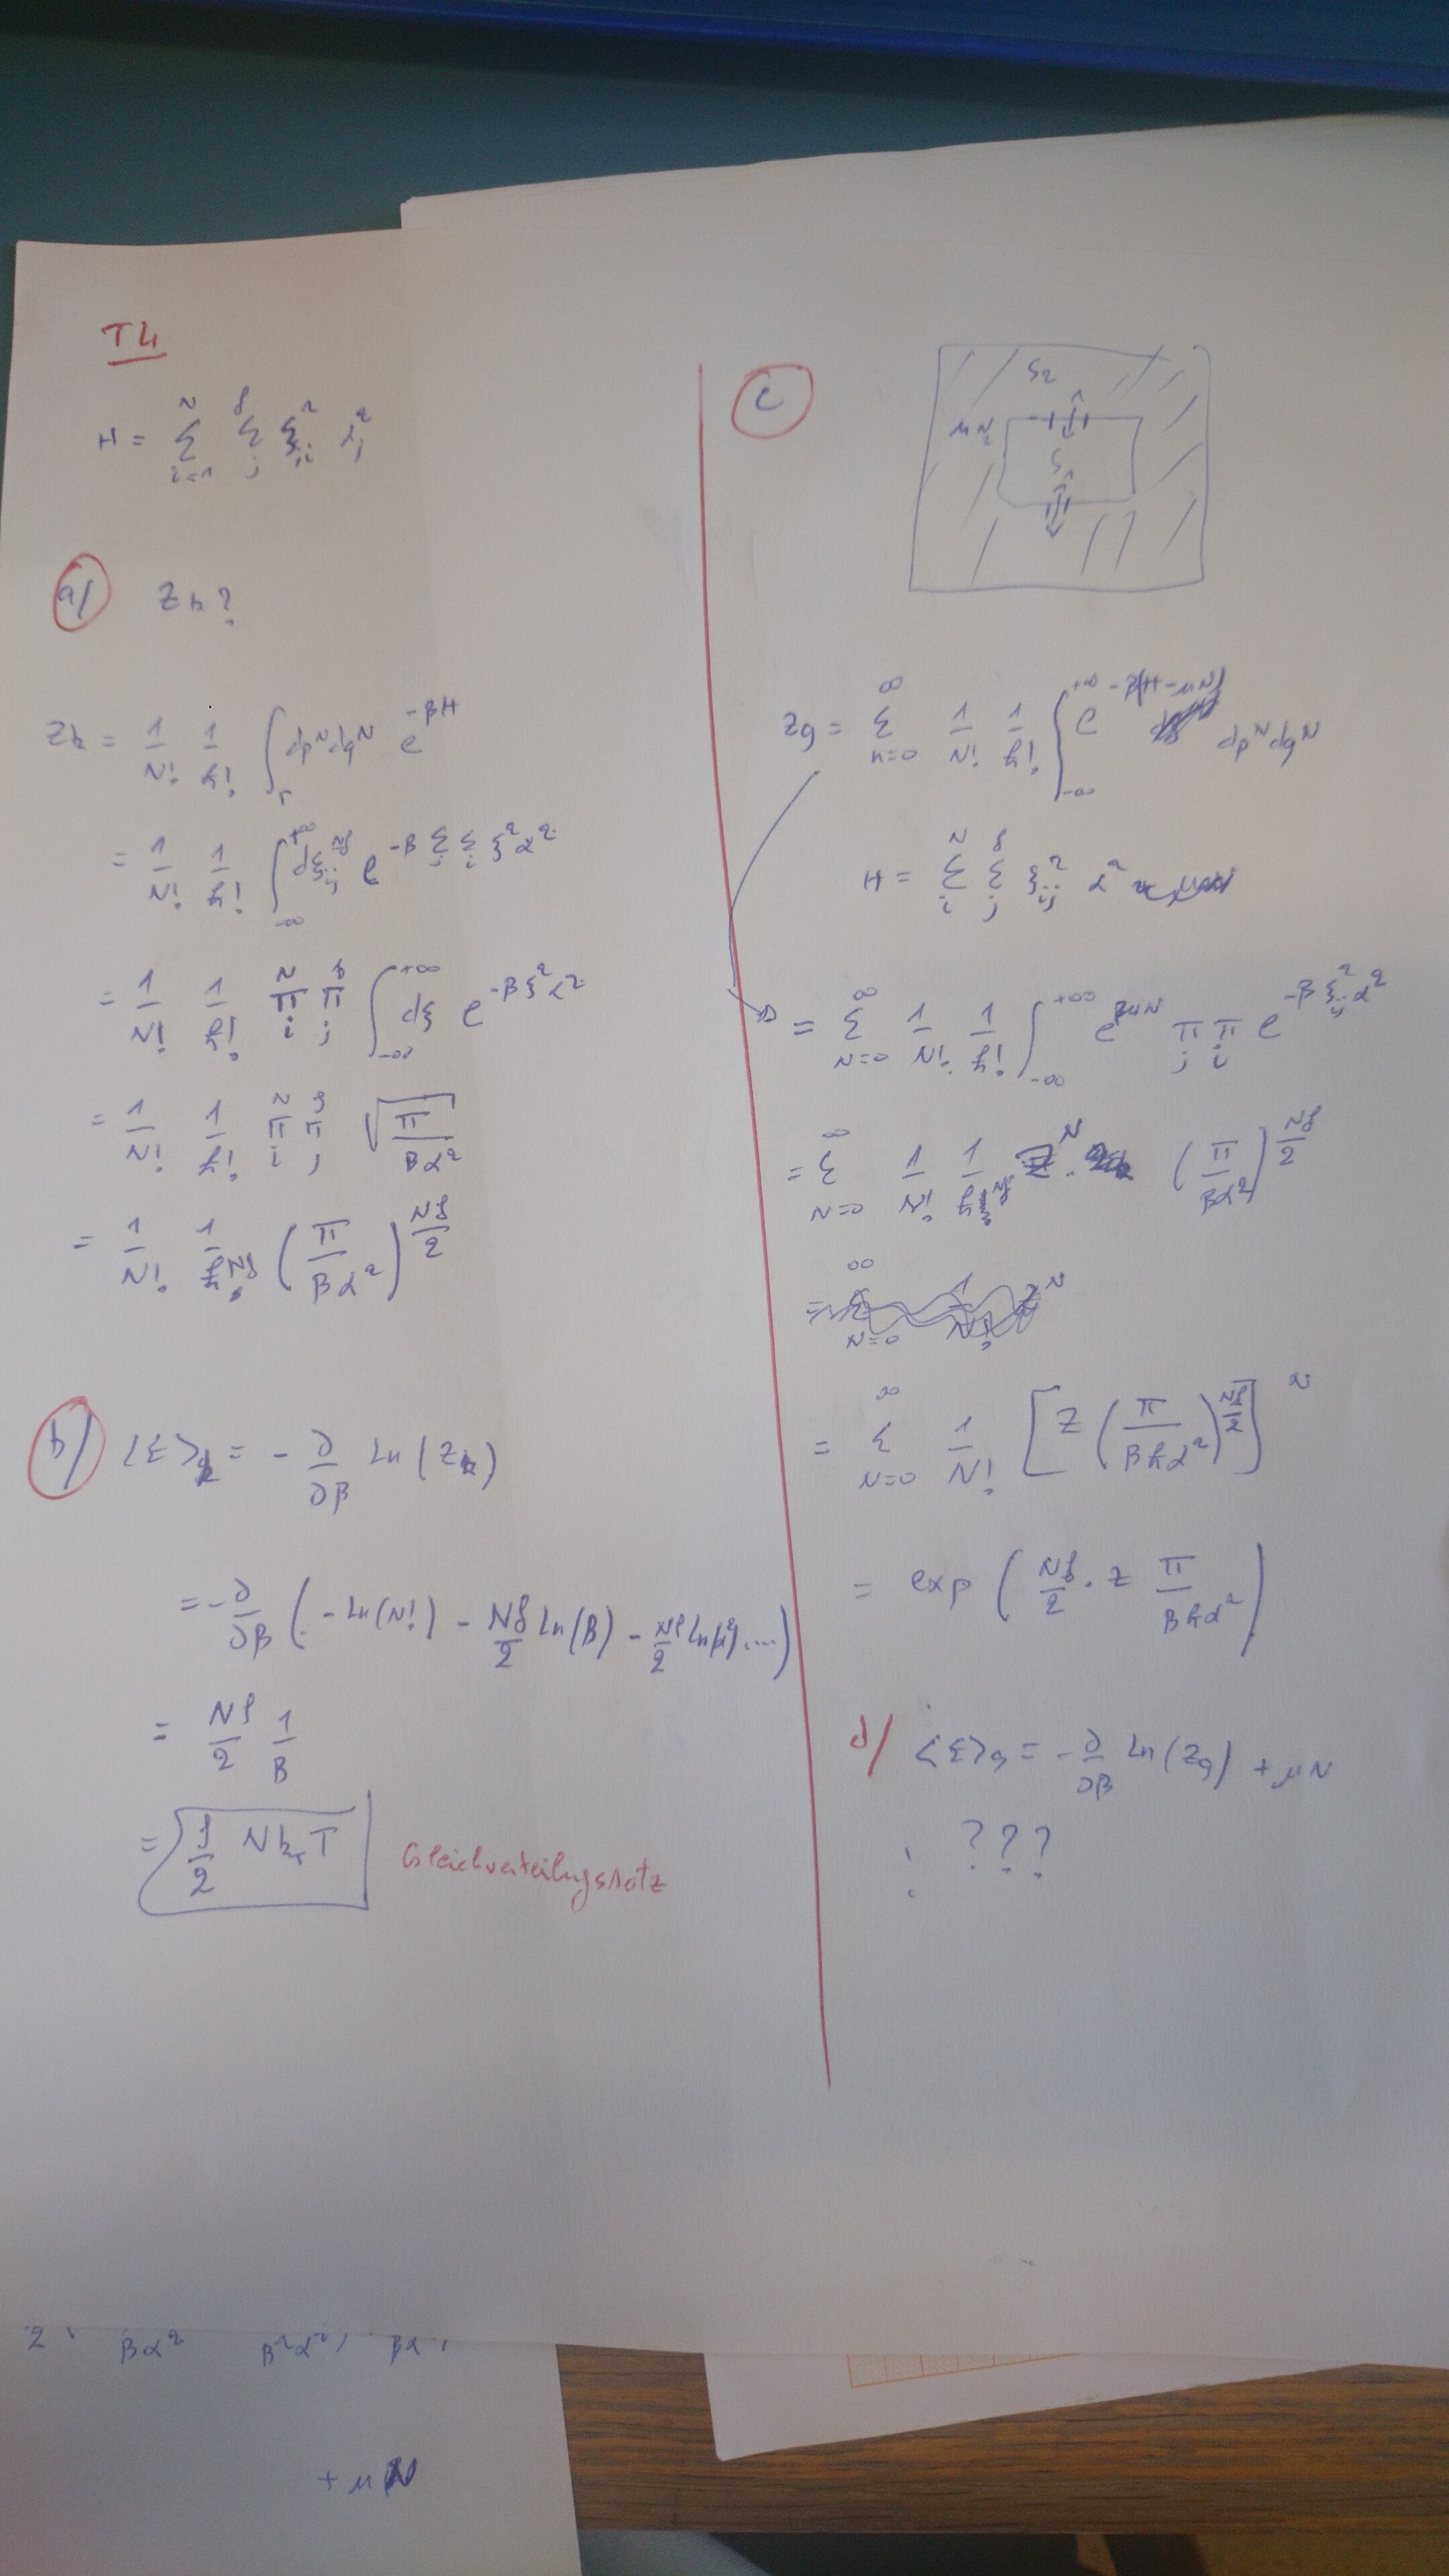 T4
H = Σ_{i=1}^{N} Σ_{j}^{f} ξ_{ij}^2 α_j^2
a) Z_k?
Z_k = 1/N! 1/h! ∫_Γ dp^N dq^N e^{-βH}
= 1/N! 1/h! ∫_{-∞}^{+∞} dξ_{ij}^{Nf} e^{-β Σ_j Σ_i ξ^2 α^2}
= 1/N! 1/h! Π_i^N Π_j^f ∫_{-∞}^{+∞} dξ e^{-βξ^2α^2}
= 1/N! 1/h! Π_i^N Π_j^f √(π/(βα^2))
= 1/N! 1/h^{Nf} (π/(βα^2))^{Nf/2}
b) <E>_k = - ∂/∂β ln(Z_k)
= -∂/∂β ( - ln(N!) - Nf/2 ln(β) - Nf/2 ln(α^2) .... )
= Nf/2 1/β
= f/2 N k_B T Gleichverteilungssatz
c
S_2
μ N_2
S
Z_g = Σ_{n=0}^{∞} 1/N! 1/h! ∫_{-∞}^{+∞} e^{-β(H-μN)} dp^N dq^N
H = Σ_i^N Σ_j^f ξ_{ij}^2 α^2
= Σ_{N=0}^{∞} 1/N! 1/h! ∫_{-∞}^{+∞} e^{βμN} Π_j Π_i e^{-βξ_{ij}^2α^2}
= Σ_{N=0}^{∞} 1/N! 1/h^{Nf} Z^N (π/(βα^2))^{Nf/2}
= Σ_{N=0}^{∞} 1/N! [ Z (π/(βhα^2))^{Nf/2} ]^N
= exp ( Nf/2 · Z π/(βhα^2) )
d) <E>_g = -∂/∂β ln(Z_g) + μN
???
2 βα^2 β^2α^2) βα
+ μN